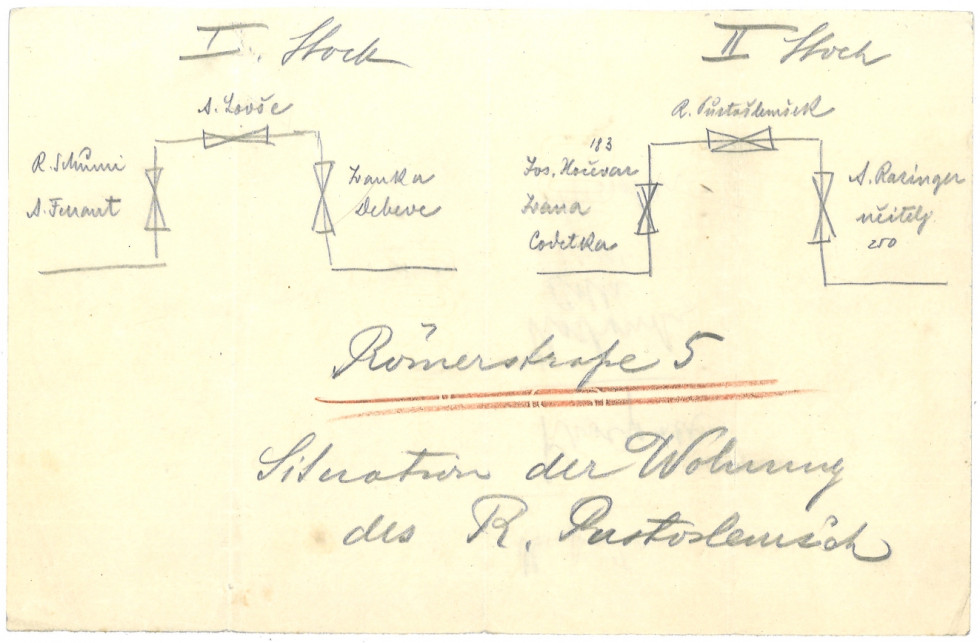 I. Stock
A. Lovše
R. Schumi
A. Ferant
Ivanka
Debevc
II Stock
R. Pustoslemšek
183
Jos. Hočevar
Ivana
Codetka
A. Razinger
učitelj
250
Römerstraße 5
Situation der Wohnung
des R. Pustoslemšek